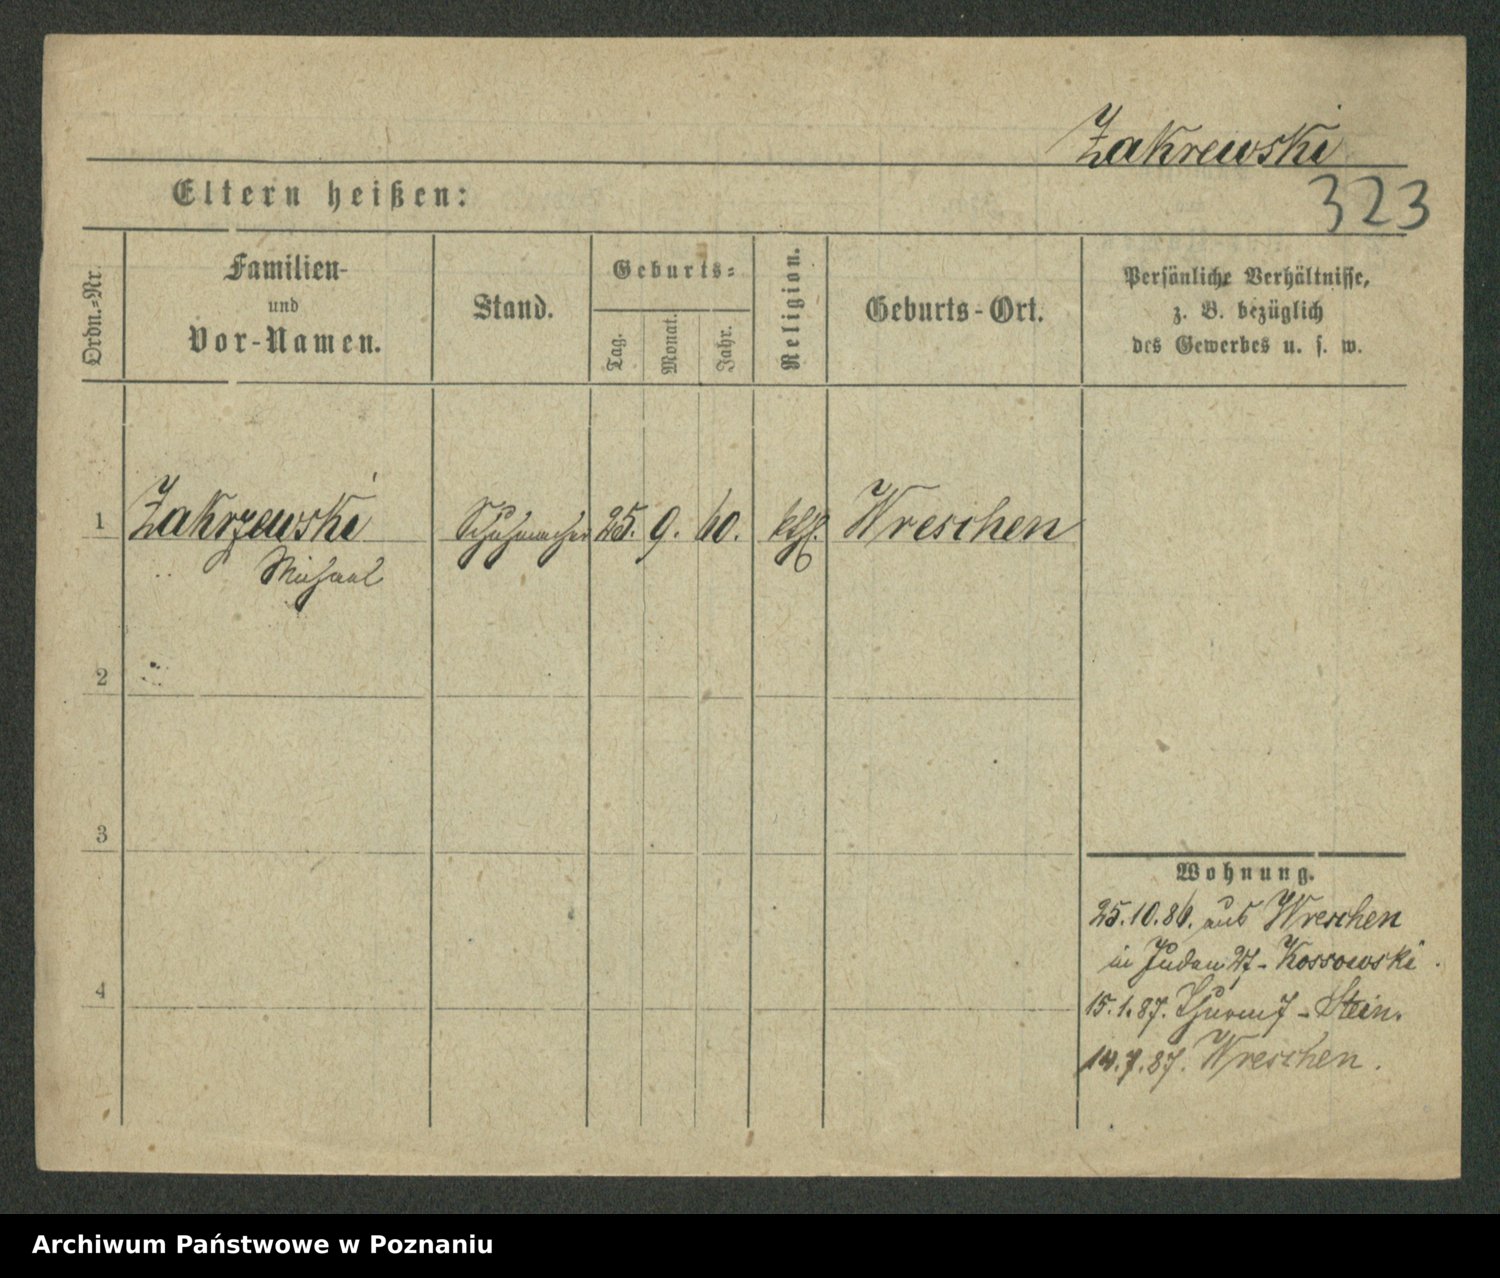 Zakrewski
323
Eltern heißen:
Ordn.-Nr.
Familien-
und
Vor-Namen.
Stand.
Geburts-
Tag.
Monat.
Jahr.
Religion.
Geburts-Ort.
Persönliche Verhältnisse,
z. B. bezüglich
des Gewerbes u. s. w.
1 Zakrzewski Schuhmacher 25. 9. 60. kth. Wreschen
Michael
2
3
4
Wohnung.
25.10.86. aus Wreschen
in Juden 27 - Kossowski.
15.1.87. Thurm 7 - Stein.
14.7.87. Wreschen.
Archiwum Państwowe w Poznaniu